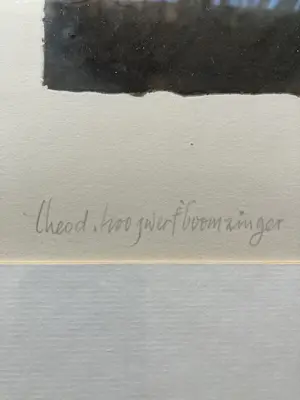 Theod. hoogwerf boomzinger